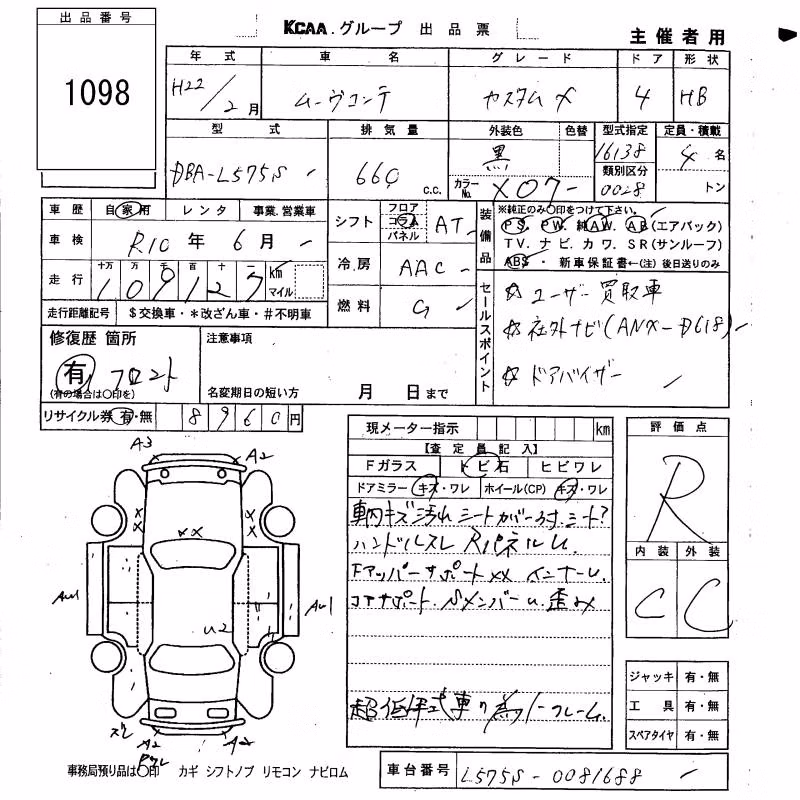 出品番号
1098
KCAA.グループ 出品票
主催者用
年式 車名 グレード ドア 形状
H22/2月 ムーヴコンテ カスタム X 4 HB
型式 排気量 外装色 色替 型式指定 定員・積載
DBA-L575S 660 c.c. 黒 16138 4名
カラーNo. X07 類別区分 0028 トン
車歴 自家用 レンタ 事業.営業車
車検 R10年6月
走行 十万 万 千 百 十 一
109127 km マイル
走行距離記号 $交換車・*改ざん車・#不明車
シフト フロア コラム パネル AT
冷房 AAC
燃料 G
装備品
※純正のみ○印をつけて下さい。
PS. PW. 純AW. AB(エアバック)
TV. ナビ. カワ. SR(サンルーフ)
ABS・新車保証書←(注)後日送りのみ
セールスポイント
☆ ユーザー買取車
☆ 社外ナビ(ANX-D618)
☆ ドアバイザー
修復歴 箇所
有 フロント
(有の場合は○印を)
注意事項
名変期日の短い方 月 日まで
リサイクル券 有・無 8960円
現メーター指示 km
【査定員記入】
Fガラス トビ石 ヒビワレ
ドアミラー キズ・ワレ ホイール(CP) キズ・ワレ
車内キズ汚れ シートカバー
ハンドルスレ RパネルU
FアッパーサポートXX インナーU
コアサポート.SメンバーU 歪み
超低年式車の為ノークレーム.
評価点
R
内装 外装
C C
ジャッキ 有・無
工具 有・無
スペアタイヤ 有・無
A3 A2
XX
AU1 U2 AU1
A2 A2
事務局預り品は○印 カギ シフトノブ リモコン ナビロム
車台番号 L575S-0081688